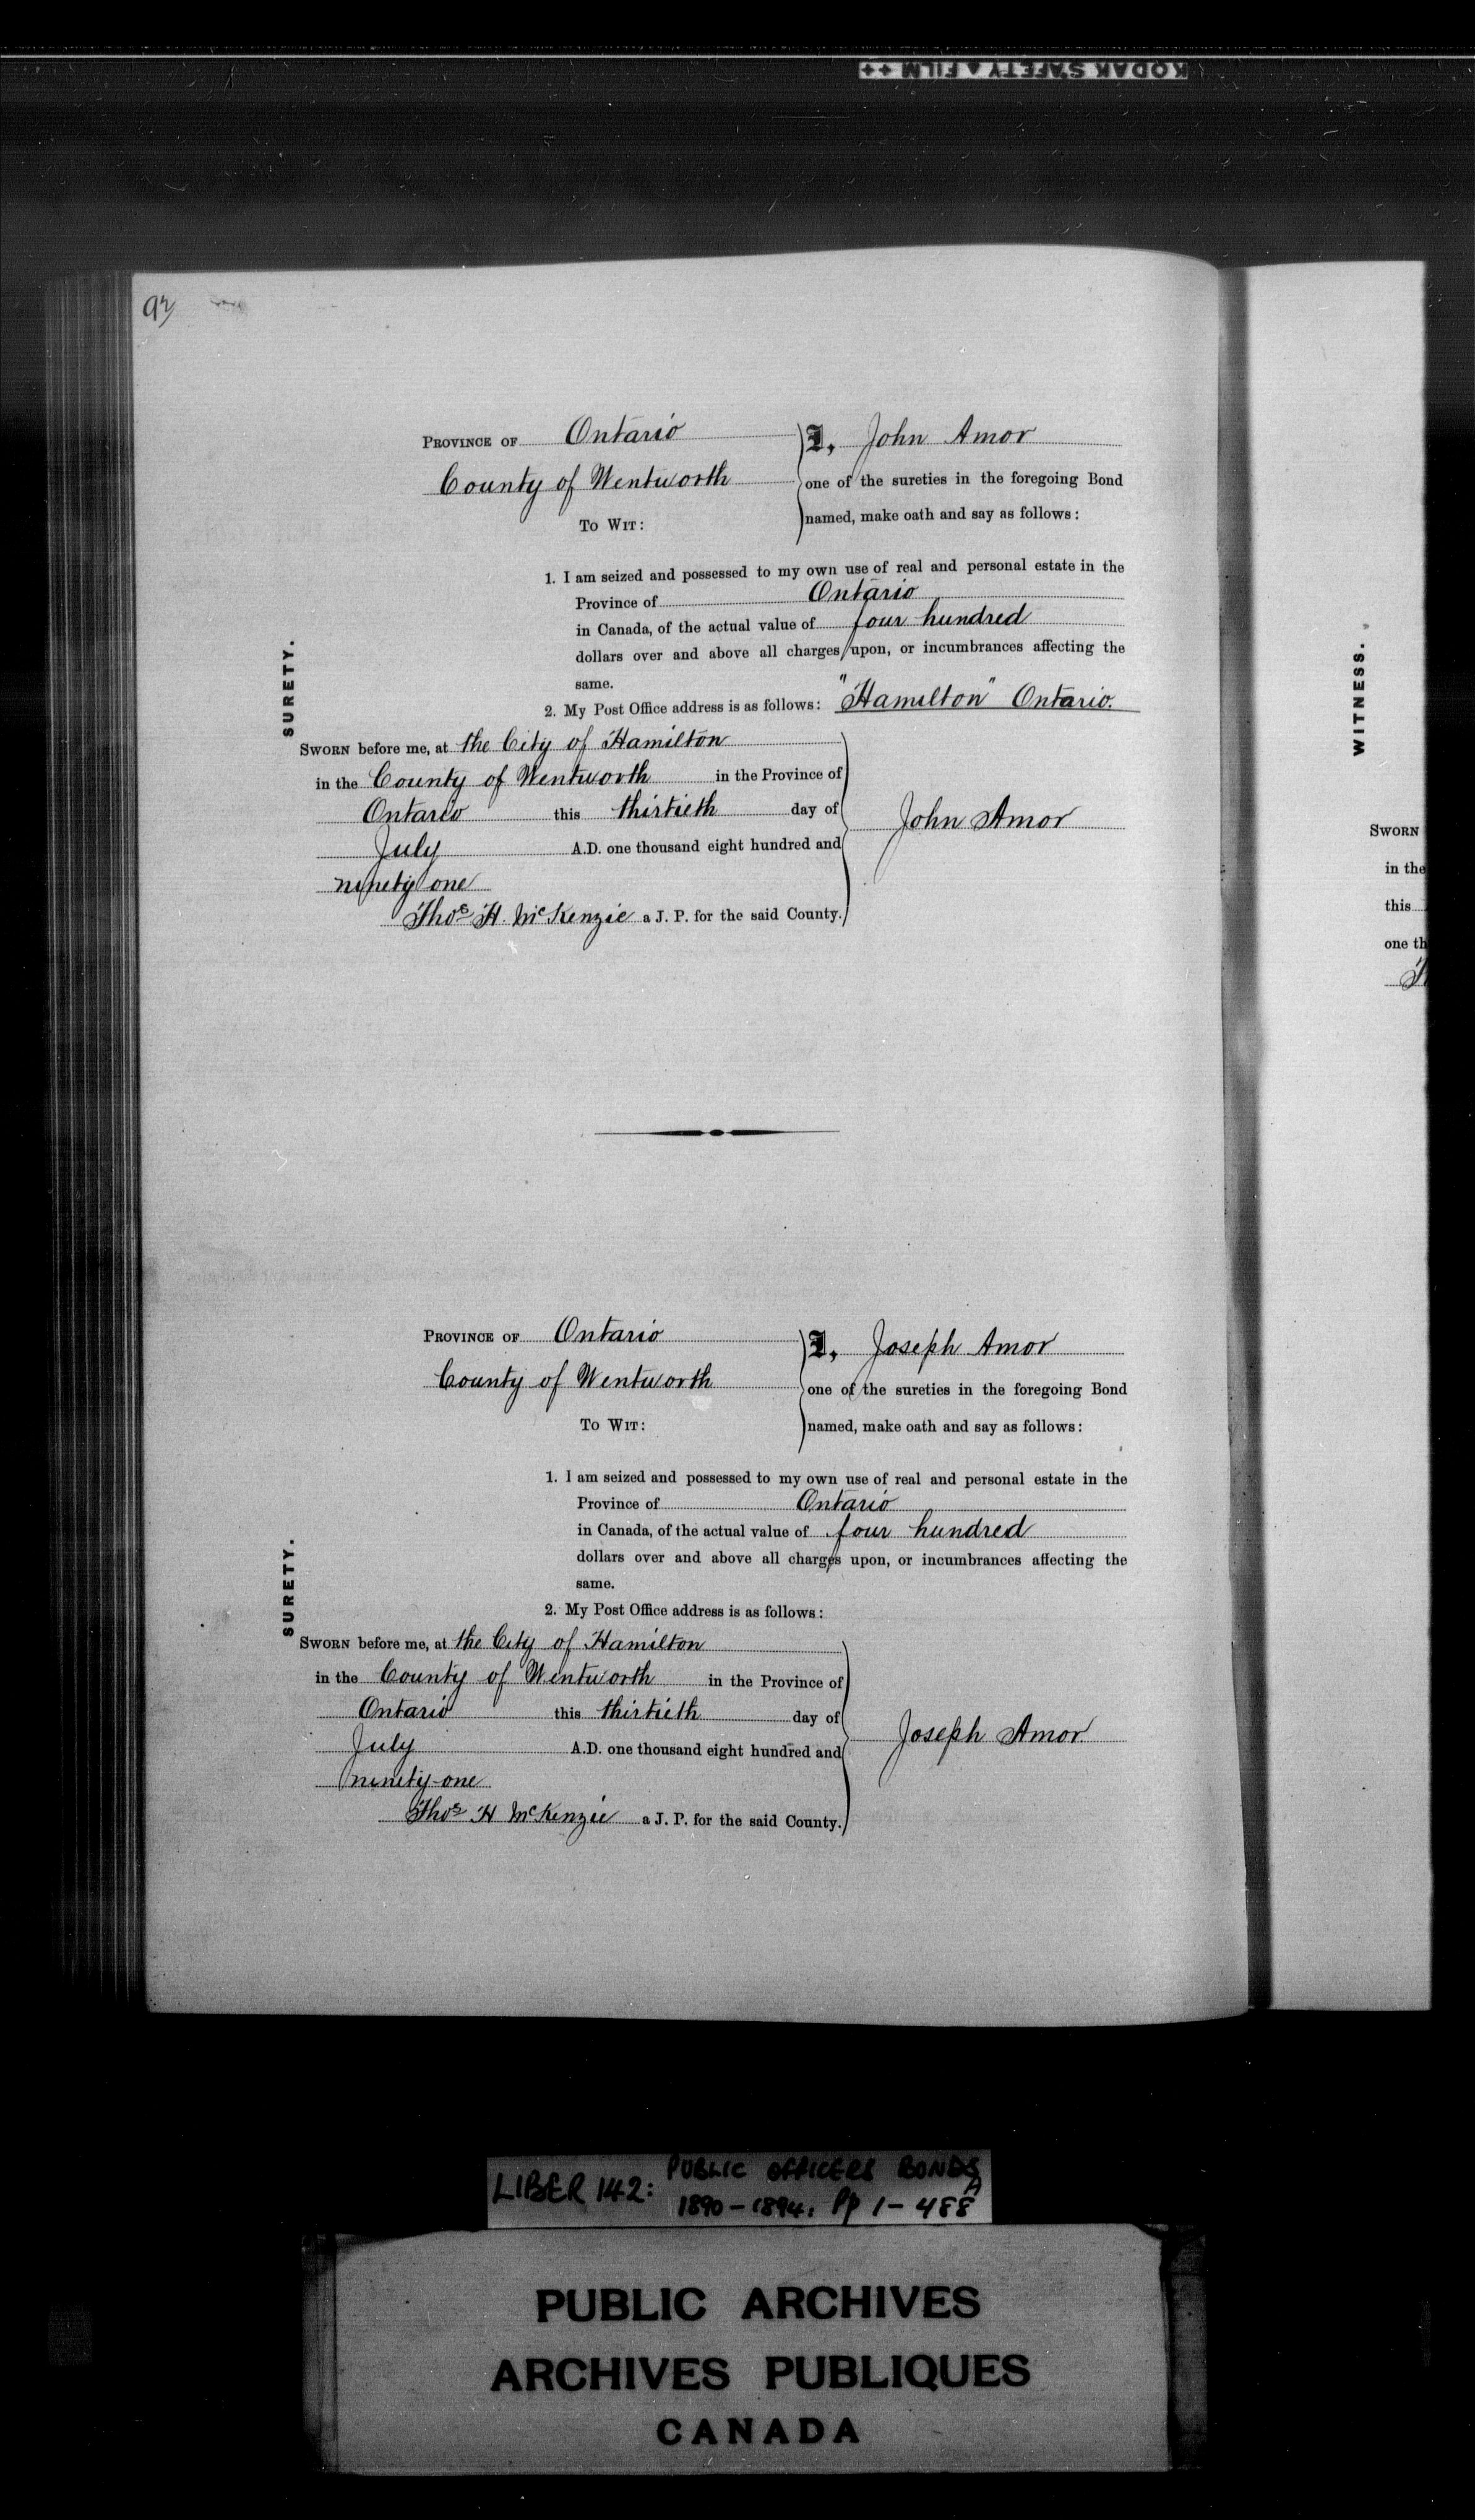 KODAK SAFETY FILM
92
PROVINCE OF Ontario
County of Wentworth
TO WIT:
I, John Amor
one of the sureties in the foregoing Bond
named, make oath and say as follows:
SURETY.
1. I am seized and possessed to my own use of real and personal estate in the
Province of Ontario
in Canada, of the actual value of four hundred
dollars over and above all charges upon, or incumbrances affecting the
same.
2. My Post Office address is as follows: "Hamilton" Ontario.
SWORN before me, at the City of Hamilton
in the County of Wentworth in the Province of
Ontario this thirtieth day of
July A.D. one thousand eight hundred and
ninety one
Thos H. McKenzie a J. P. for the said County.
John Amor
PROVINCE OF Ontario
County of Wentworth
TO WIT:
I, Joseph Amor
one of the sureties in the foregoing Bond
named, make oath and say as follows:
SURETY.
1. I am seized and possessed to my own use of real and personal estate in the
Province of Ontario
in Canada, of the actual value of four hundred
dollars over and above all charges upon, or incumbrances affecting the
same.
2. My Post Office address is as follows:
SWORN before me, at the City of Hamilton
in the County of Wentworth in the Province of
Ontario this thirtieth day of
July A.D. one thousand eight hundred and
ninety-one
Thos H McKenzie a J. P. for the said County.
Joseph Amor
WITNESS.
SWORN
in the
this
one th
LIBER 142: PUBLIC OFFICERS BONDS
1890-1894. Pp 1-488A
PUBLIC ARCHIVES
ARCHIVES PUBLIQUES
CANADA